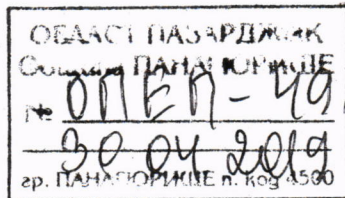 ОБЛАСТ ПАЗАРДЖИК
Община ПАНАГЮРИЩЕ
№ ОПЕП-49
30 04 2019
гр. ПАНАГЮРИЩЕ п. код 4500